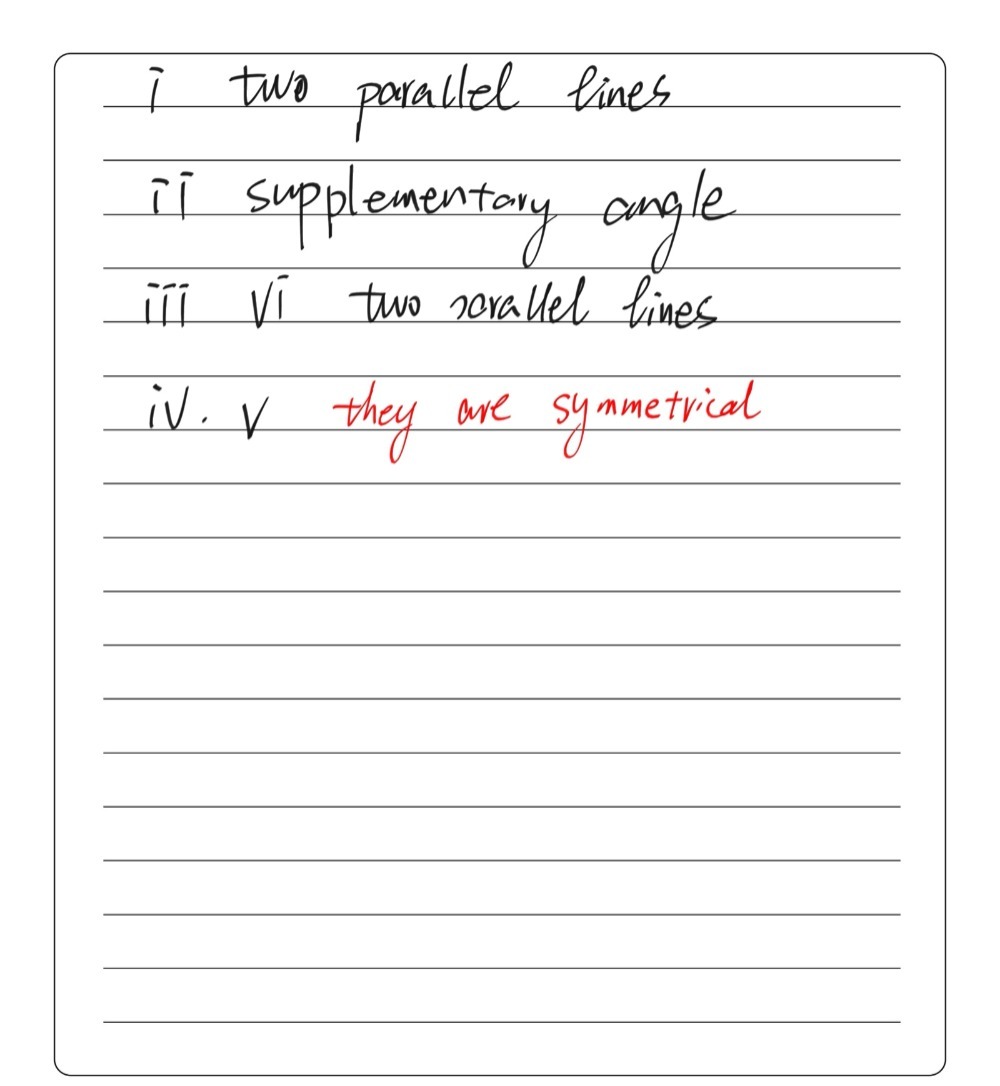 i two parallel lines
ii supplementary angle
iii vi two parallel lines
iv. v they are symmetrical